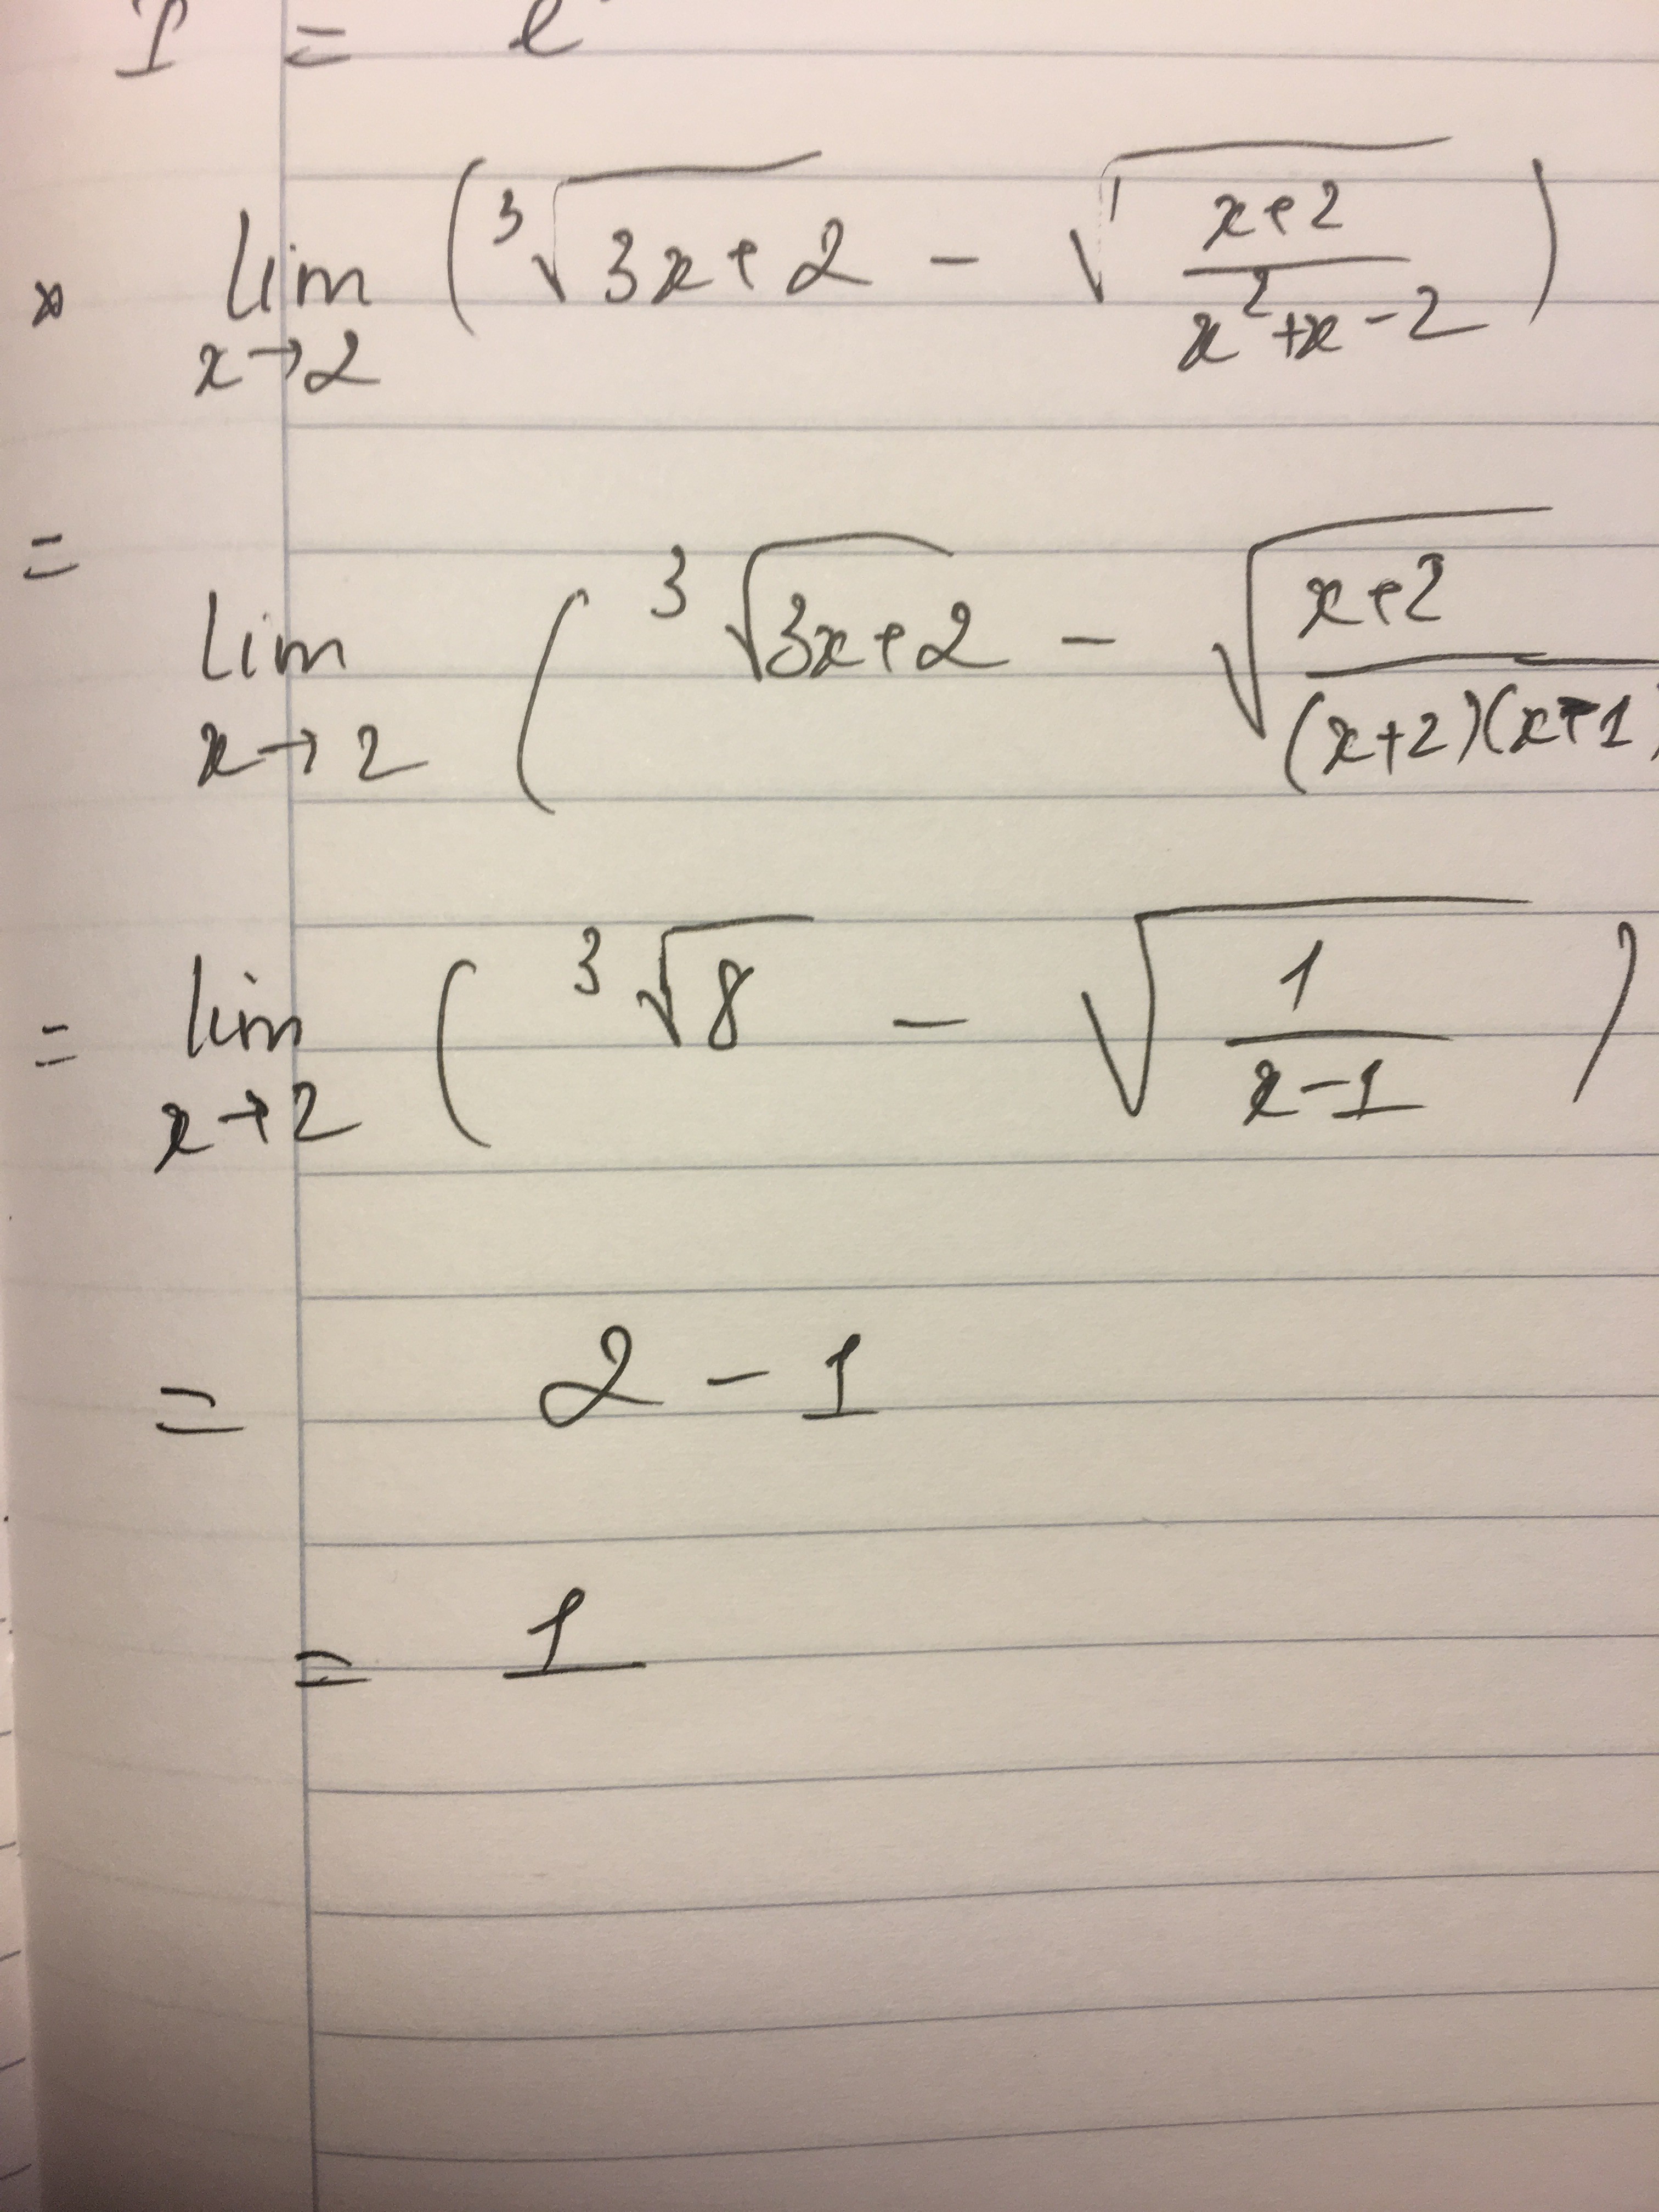 I = e
* lim x→2 (³√(3x+2) − √((x+2)/(x²+x−2)))
= lim x→2 (³√(3x+2) − √((x+2)/((x+2)(x-1)
= lim x→2 (³√8 − √(1/(x−1)))
= 2 − 1
= 1